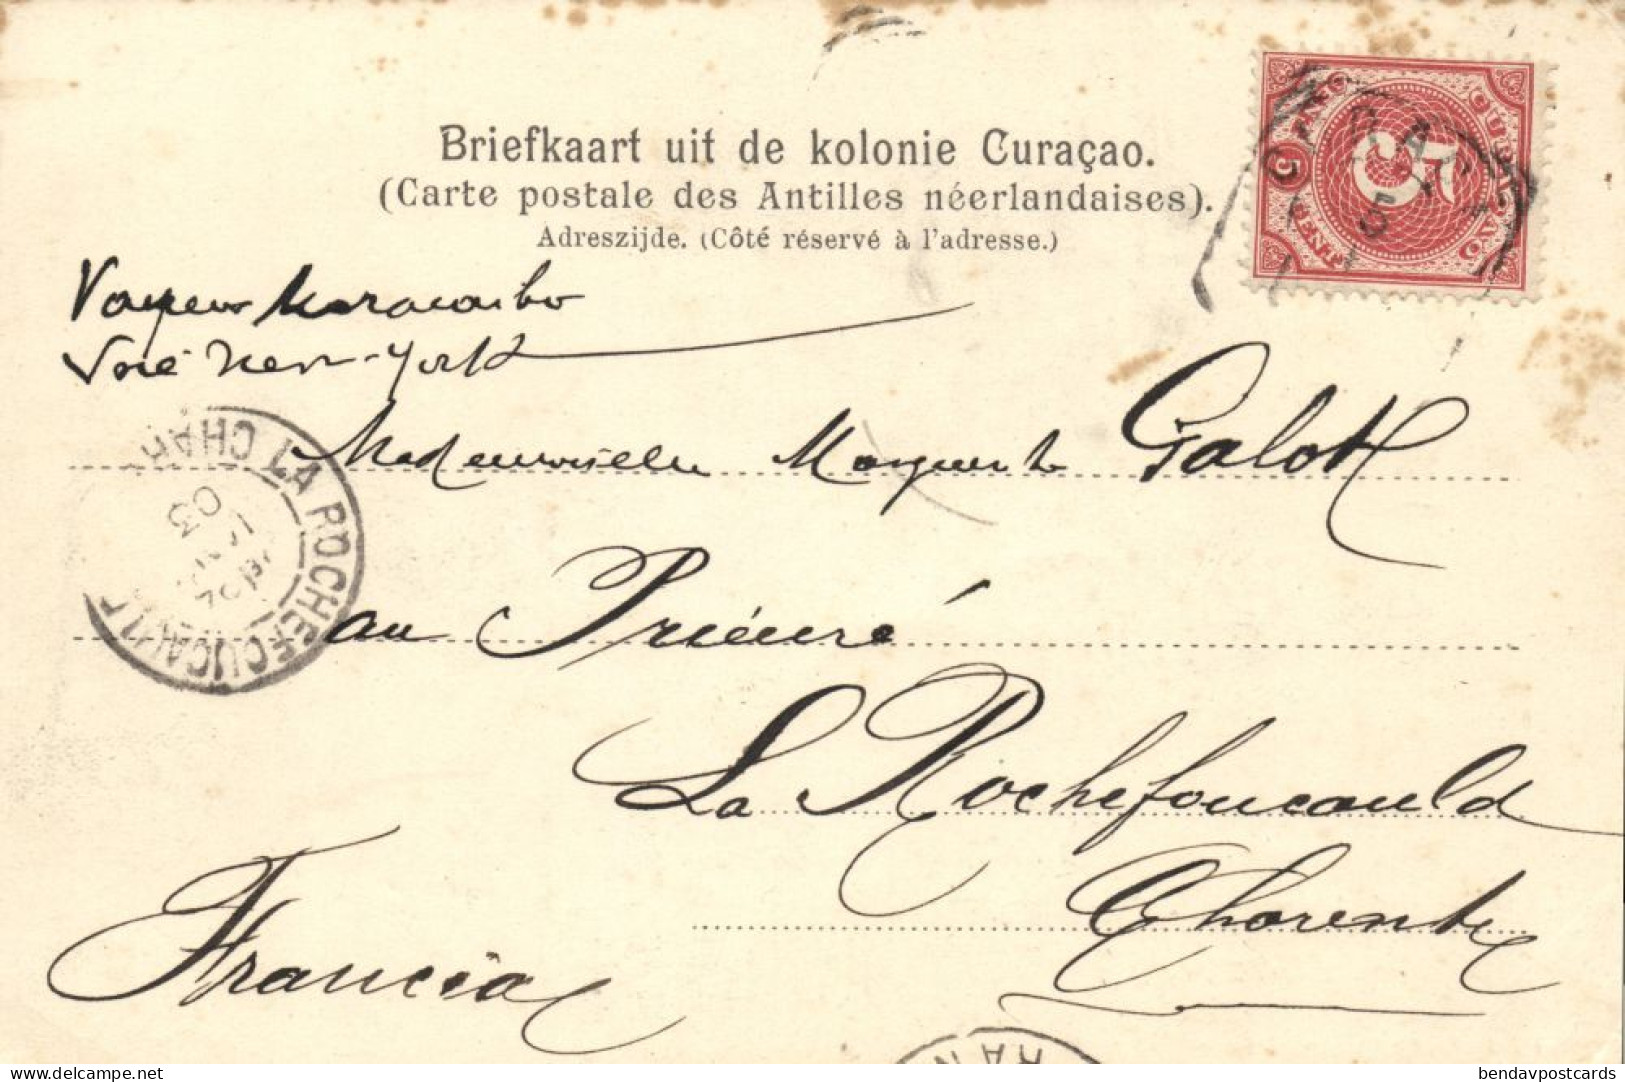 Briefkaart uit de kolonie Curaçao.
(Carte postale des Antilles néerlandaises).
Adreszijde. (Côté réservé à l'adresse.)
CURAÇAO
5 CENT 5
Vapeur Maracaibo
Voie New-York
Mademoiselle Marguerite Galot
au Prieuré
La Rochefoucauld
Charente
Francia
LA ROCHEFOUCAULD CHAR
03
delcampe.net
bendavpostcards